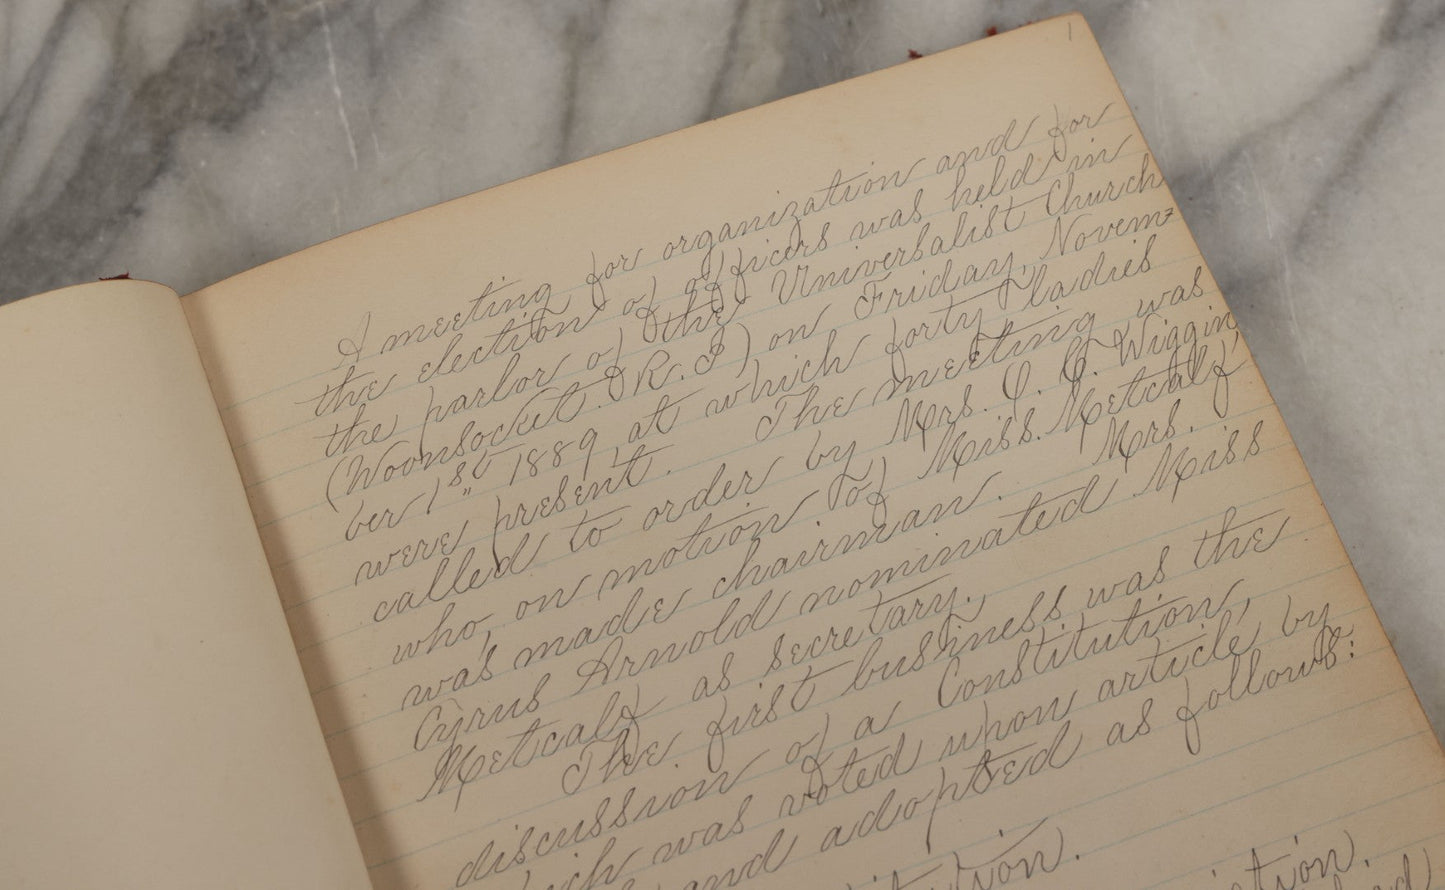 1
A meeting for organization and for
the election of officers was held in
the parlor of the Universalist Church
(Woonsocket. R. I.) on Friday, Novem=
ber 1st 1889, at which forty ladies
were present. The meeting was
called to order by Mrs. C. C. Wiggin,
who, on motion of Miss. Metcalf,
was made chairman. Mrs.
Cyrus Arnold nominated Miss
Metcalf as secretary.
The first business was the
discussion of a Constitution,
which was voted upon article by
and adopted as follows: